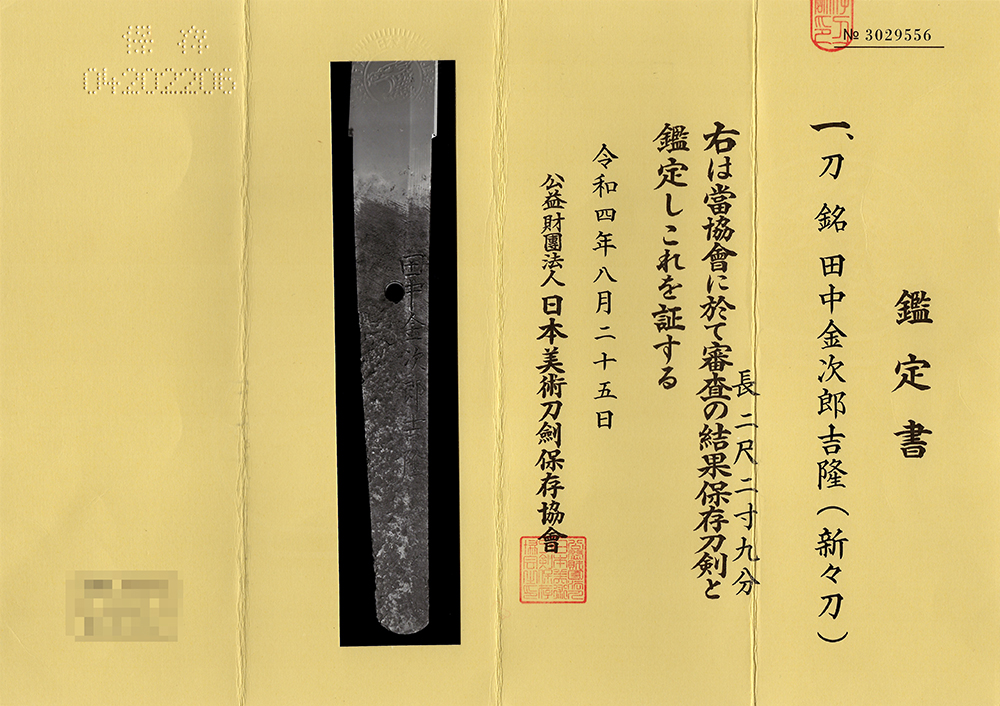 № 3029556
鑑定書
一、刀 銘 田中金次郎吉隆(新々刀)
長 二尺二寸九分
右は當協會に於て審査の結果保存刀剣と
鑑定しこれを証する
令和四年八月二十五日
公益財團法人 日本美術刀劍保存協會
田中金次郎
保存
04202206